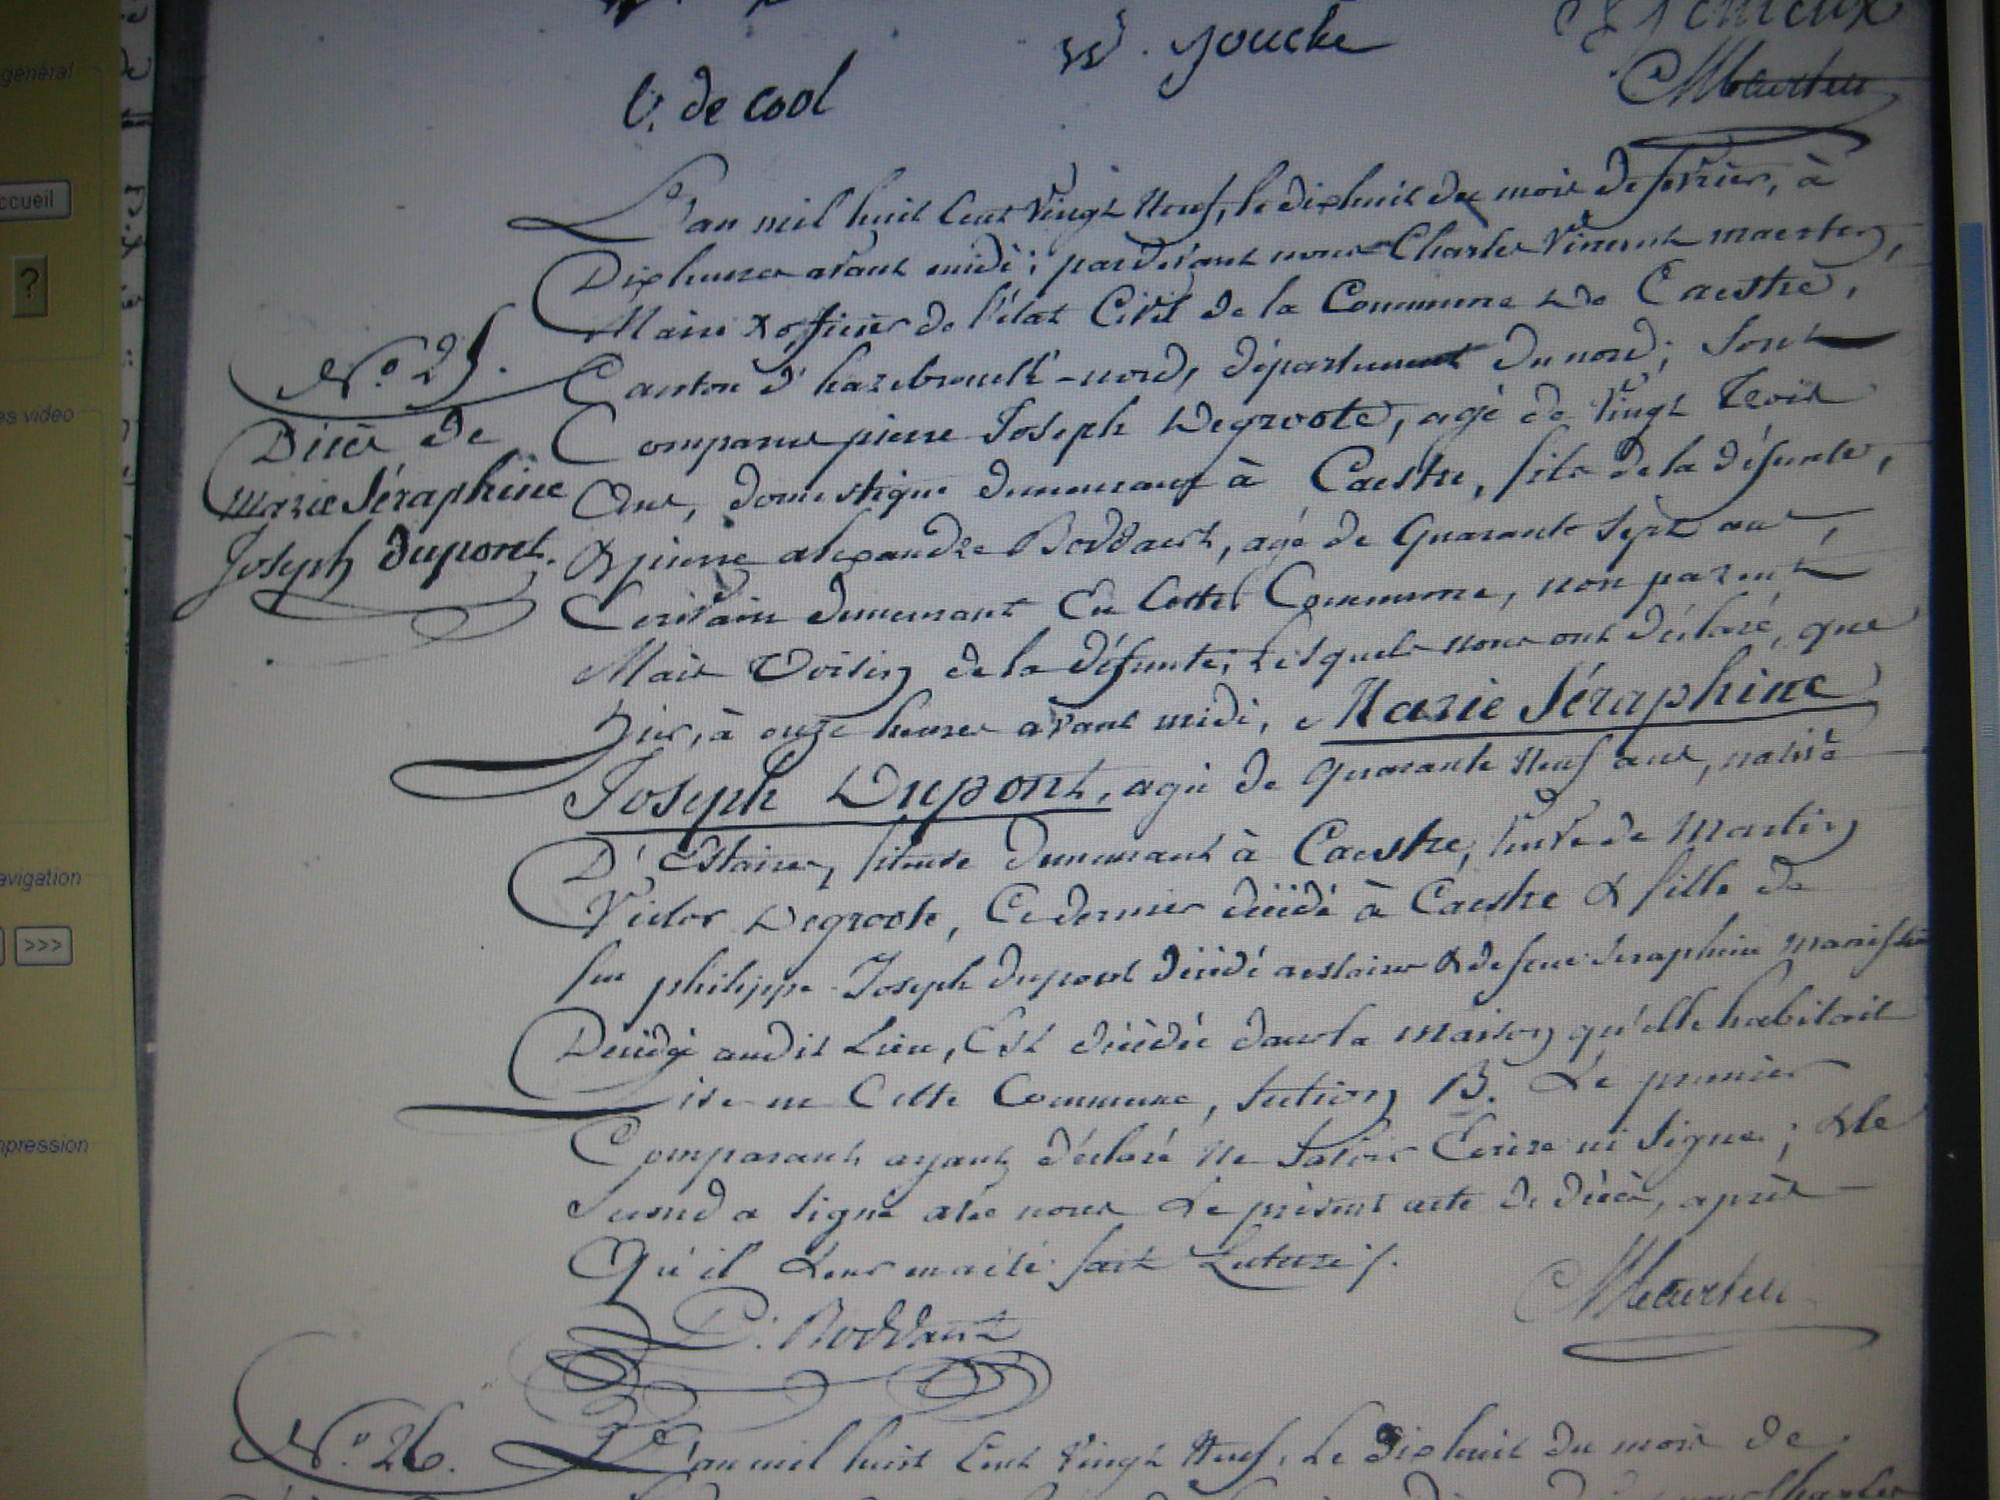 W. Jouche
C. de cool
général
ccueil
?
es video
avigation
>>>
mpression
L'an mil huit Cent Vingt Neuf, le dixhuit du mois de fevrier, à
Dix heures avant midi; pardevant nous Charles Vincent maerten,
Maire & officier de l'état Civil de la Commune de Caestre,
Canton d'hazebrouck-nord, département du nord; sont
Comparus pierre Joseph Degroote, agé de Vingt Trois
Ans, domestique demeurant à Caestre, fils de la défunte,
& pierre alexandre Boddaert, agé de Quarante Sept ans,
Ecrivain demeurant En Cette Commune, non parent
Mais Voisin de la défunte, Lesquels nous ont déclaré, que
hier, à onze heures avant midi, Marie Séraphine
Joseph Dupont, agée de Quarante Neuf ans, native
D'Estaires, fileuse demeurant à Caestre, Veuve de Martin
Victor Degroote, Ce dernier décédé à Caestre & fille de
feu philippe Joseph dupont décédé aestaires & de feue Seraphine
Décédé audit Lieu, Est décédée dans la maison qu'elle habitait
sise en Cette Commune, Section B. Le premier
Comparant ayant déclaré Ne Savoir Ecrire ni Signer; & le
Second a Signé avec nous Le présent acte de décès, après
Qu'il Leur en a été fait Lecture /.
N.° 25.
Décès de
Marie Séraphine
Joseph dupont.
P. Boddaert
Maerten
N.° 26.
L'an mil huit Cent Vingt Neuf, Le dixhuit du mois de